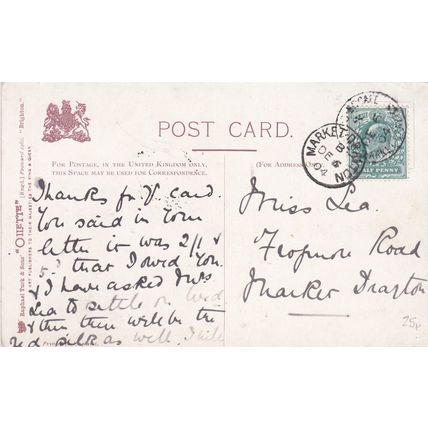 POST CARD.
FOR POSTAGE, IN THE UNITED KINGDOM ONLY,
THIS SPACE MAY BE USED FOR CORRESPONDENCE.
(FOR ADDRESS ON
Raphael Tuck & Sons' "OILETTE" [Regd.] Postcard "Brighton."
ART PUBLISHERS TO THEIR MAJESTIES THE KING & QUEEN
MARKET DRAYTON
DE 6
04
HALF PENNY
Thanks for Yr card.
You said in Your
letter it was 2/1 &
that I owed You
& I have asked Mrs
Lea to settle on Wed
& then there will be the
silk as well. I will
Miss Lea.
Road
Market Drayton
25p